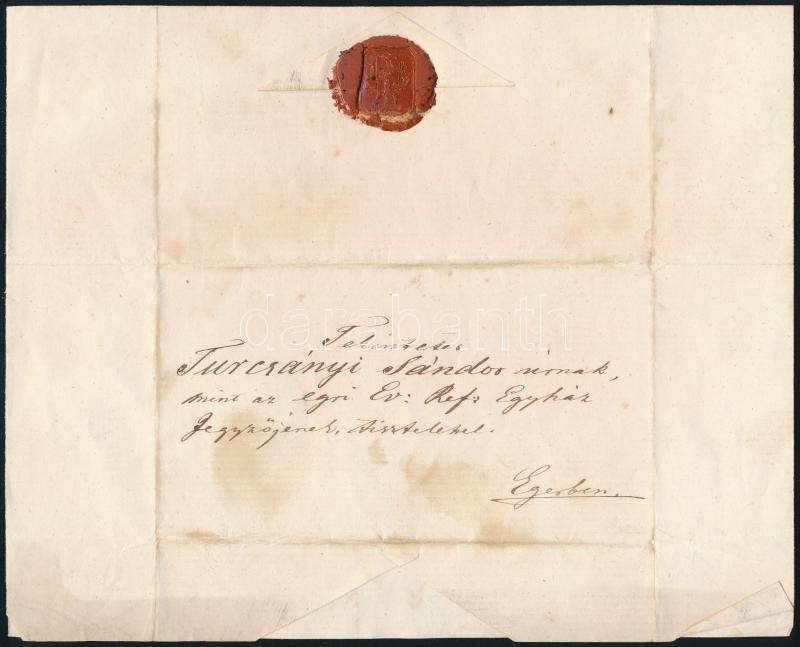 Tekintetes
Turcsányi Sándor úrnak,
mint az egri Ev: Ref: Egyház
Jegyzőjének, tisztelettel.
Egerben.
darabanth